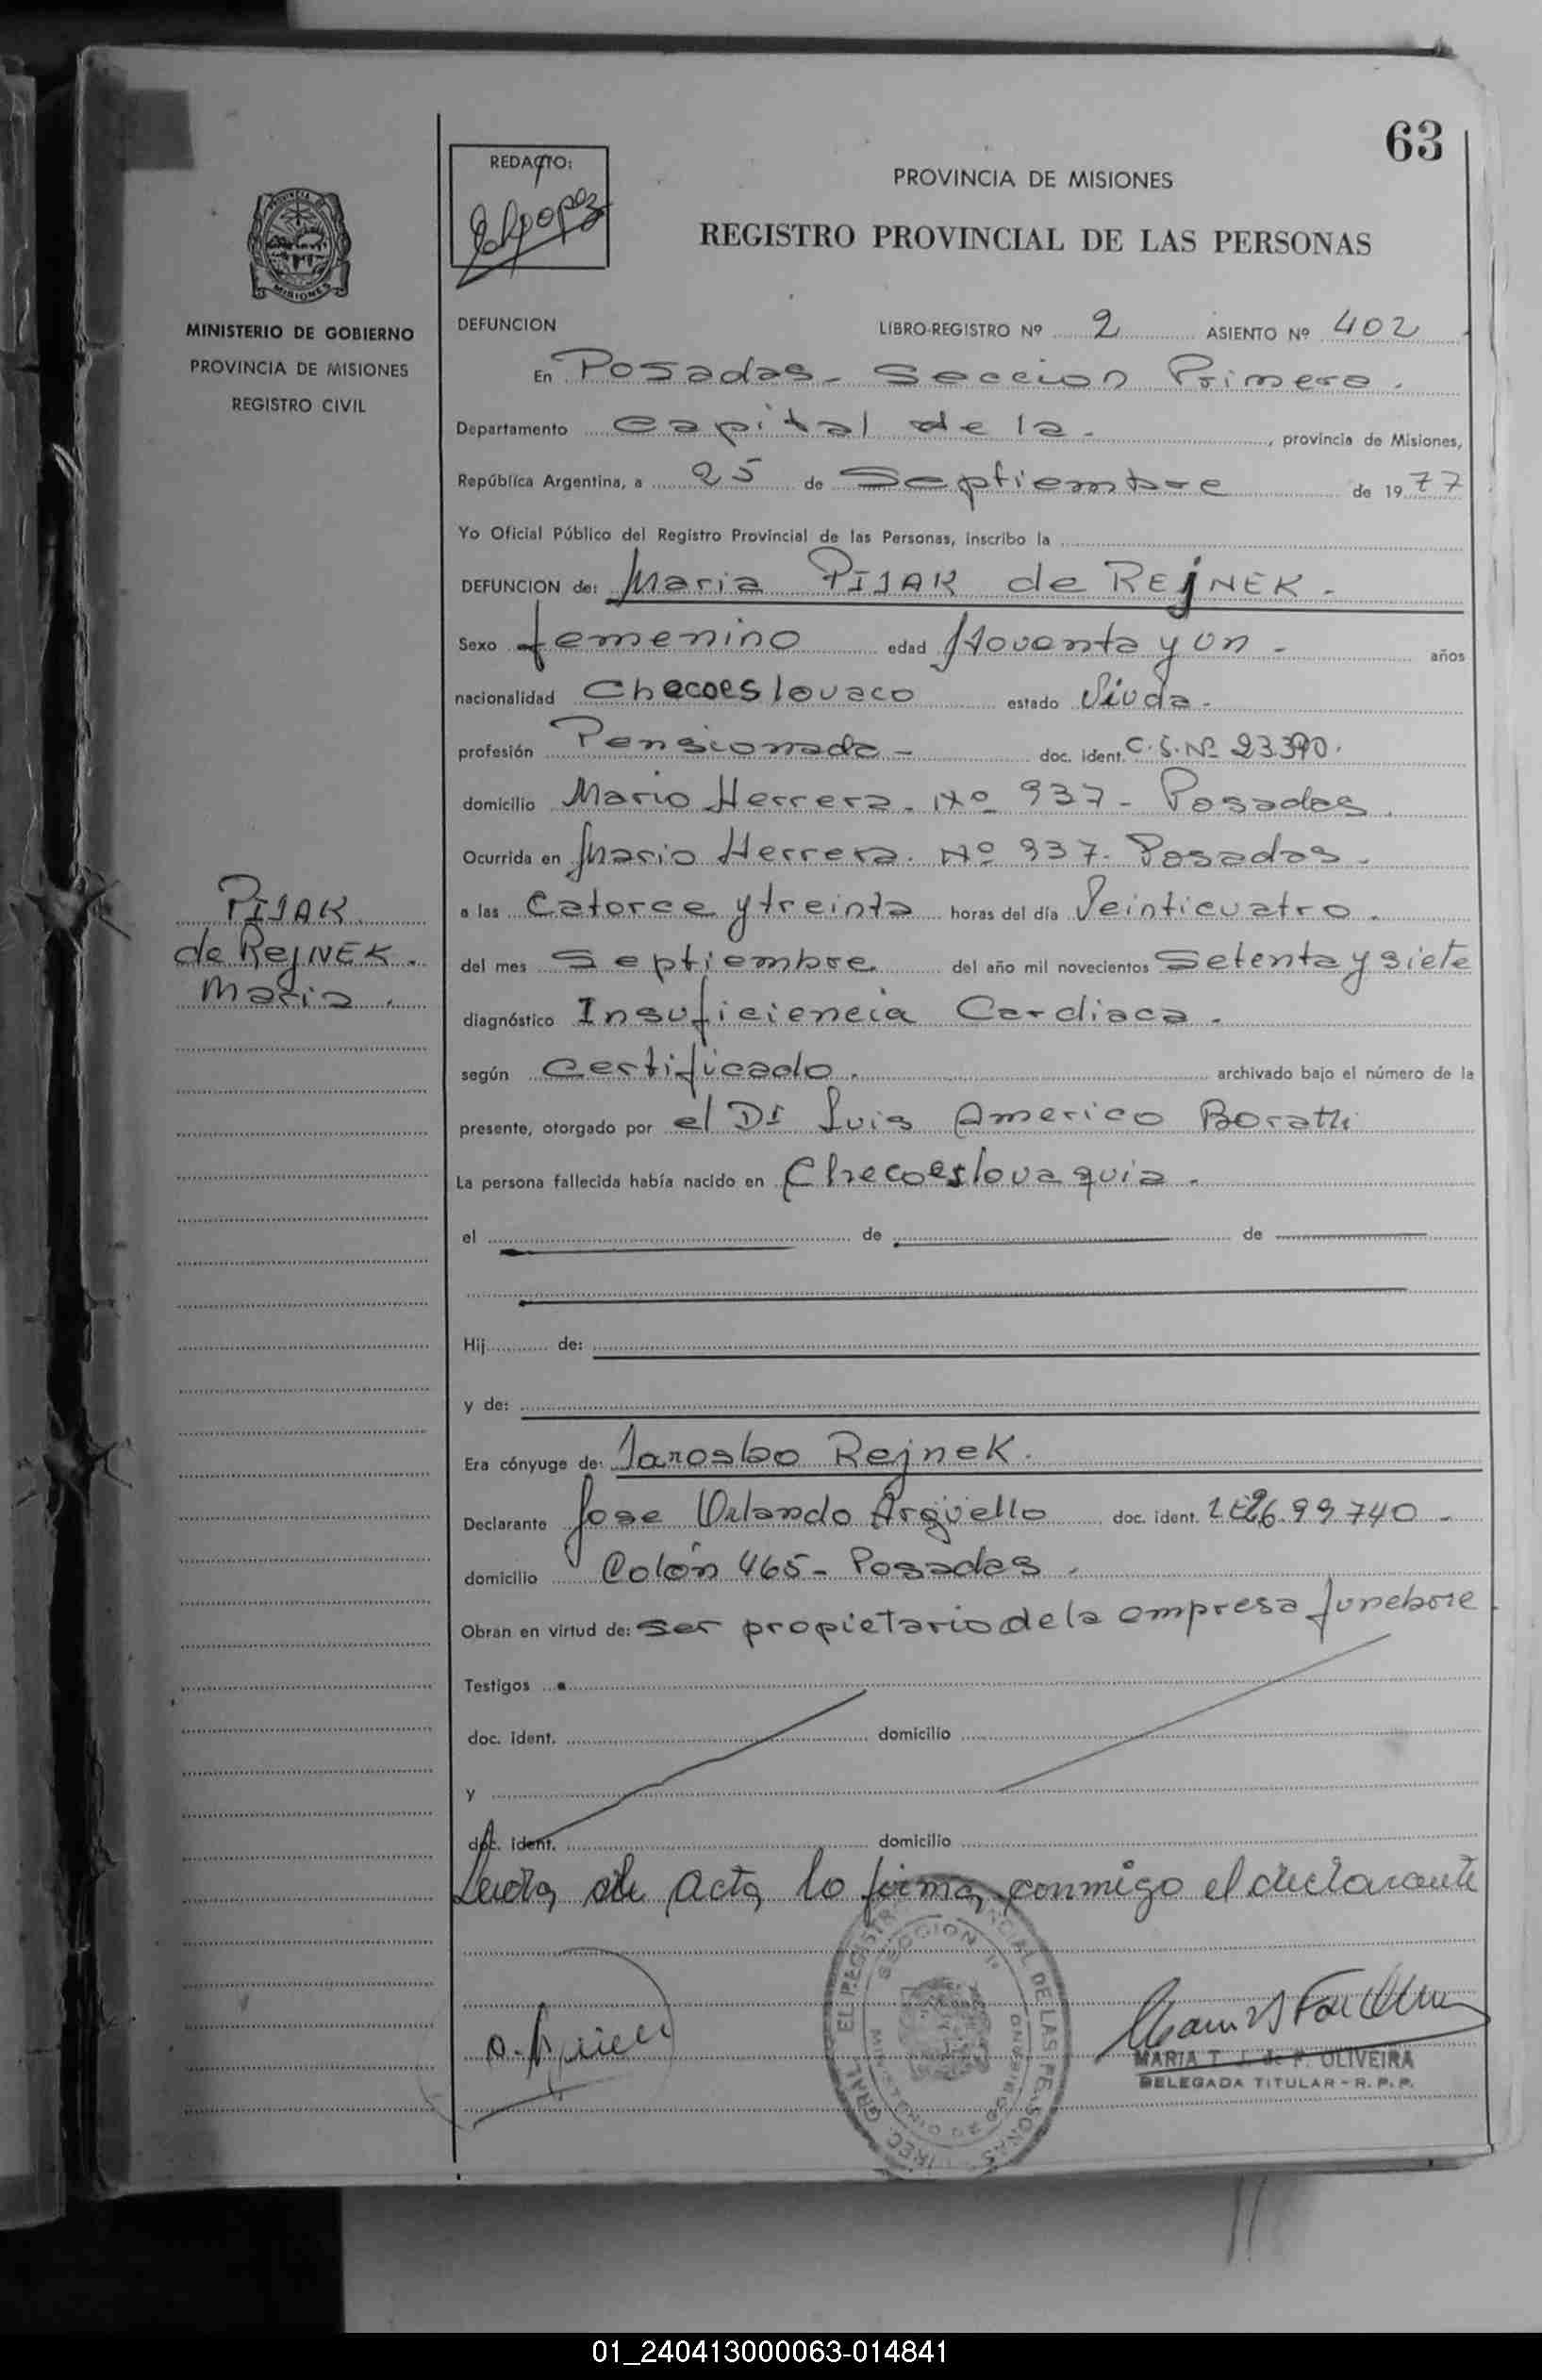 63
REDACTO:
PROVINCIA DE MISIONES
REGISTRO PROVINCIAL DE LAS PERSONAS
MISIONES
MINISTERIO DE GOBIERNO
PROVINCIA DE MISIONES
REGISTRO CIVIL
DEFUNCION LIBRO-REGISTRO Nº 2 ASIENTO Nº 402
En Posadas - Seccion Primera.
Departamento Capital de la - , provincia de Misiones,
República Argentina, a 25 de Septiembre de 1977
Yo Oficial Público del Registro Provincial de las Personas, inscribo la
DEFUNCION de: Maria PIJAK de REjNEK -
Sexo femenino edad Noventa y un - años
nacionalidad Checoeslovaco estado Viuda -
profesión Pensionada - doc. ident. C.I. Nº 23.390.
domicilio Mario Herrera - Nº 937 - Posadas.
Ocurrida en Mario Herrera. Nº 937. Posadas.
a las Catorce y treinta horas del día Veinticuatro.
del mes Septiembre del año mil novecientos Setenta y siete
diagnóstico Insuficiencia Cardiaca.
según Certificado. archivado bajo el número de la
presente, otorgado por el Dr Luis Americo
La persona fallecida había nacido en Checoeslovaquia.
el de de
Hij de:
y de:
Era cónyuge de: Jaroslao Rejnek.
Declarante Jose Orlando Argüello doc. ident. 740 -
domicilio Colón 465 - Posadas.
Obran en virtud de: ser propietario de la empresa funebre.
Testigos
doc. ident. domicilio
y
doc. ident. domicilio
Leida el acta, lo firma, conmigo el declarante
PIJAK
de REjNEK.
Maria.
SECCION 1ª
MARIA T. J. de F. OLIVEIRA
DELEGADA TITULAR - R. P. P.
01_240413000063-014841